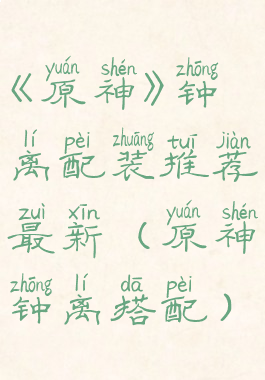 yuán shén zhōng
《原神》钟
lí pèi zhuāng tuī jiàn
离配装推荐
zuì xīn yuán shén
最新（原神
zhōng lí dā pèi
钟离搭配）